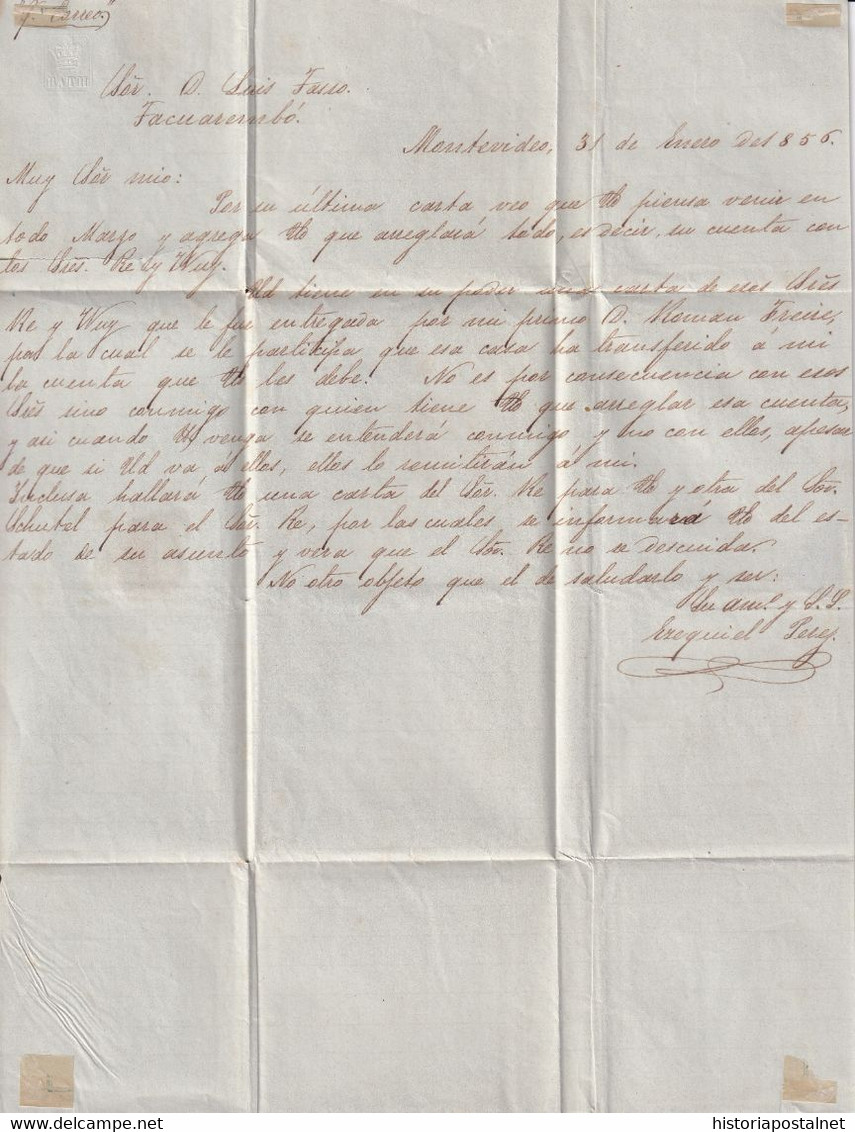 "Pr. Correo"
BATH
Sôr. D. Luis Fasso.
Tacuarembó.
Montevideo, 31 de Enero de 1856.
Muy Sôr mio:
Por su última carta veo que Ud piensa venir en
todo Marzo y agrega Ud que arreglará todo, es decir, su cuenta con
los Srês. Re y Wuy.
Ud tiene en su poder una carta de esos Srês
Re y Wuy que le fue entregada por mi primo D. Roman Freire,
por la cual se le participa que esa casa ha transferido á mi
la cuenta que Ud les debe. No es por consecuencia con esos
Srês sino conmigo con quien tiene Ud que arreglar esa cuenta,
y asi cuando Ud venga se entenderá conmigo y no con ellos, apesar
de que si Ud va á ellos, ellos lo remitirán á mi.
Inclusa hallará Ud una carta del Sôr. Re para Ud y otra del Sôr.
Schutel para el Sôr. Re, por las cuales se informará Ud del es-
tado de su asunto y vera que el Sôr. Re no se descuida.
No otro objeto que el de saludarlo y ser:
Su amº. y S. S.
Ezequiel Perez.
delcampe.net
historiapostalnet